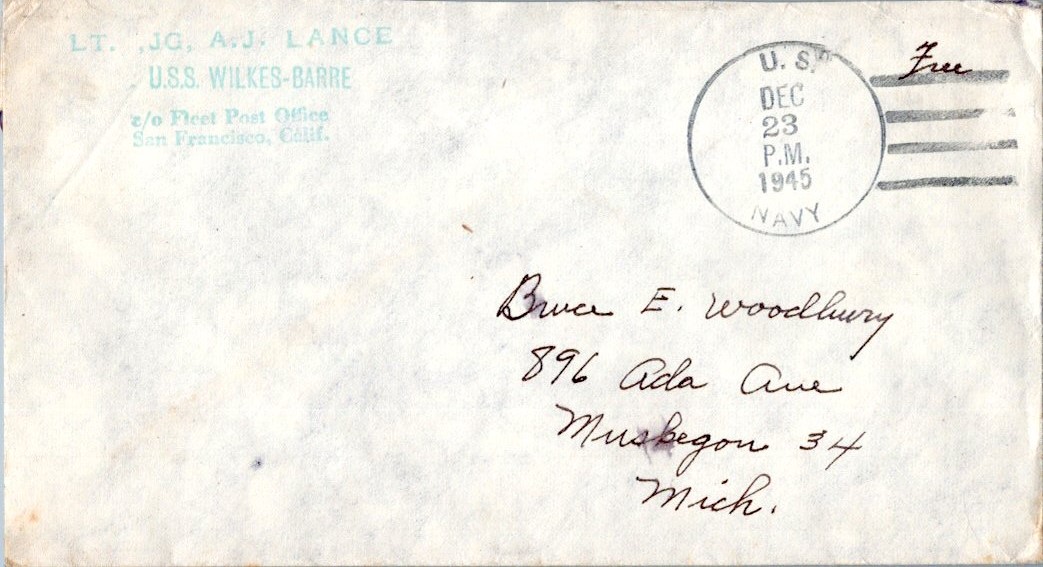 LT. ,JG, A.J. LANCE
U.S.S. WILKES-BARRE
c/o Fleet Post Office
San Francisco, Calif.
U. S.
DEC
23
P.M.
1945
NAVY
Free
Bruce E. Woodbury
896 Ada Ave
Muskegon 34
Mich.